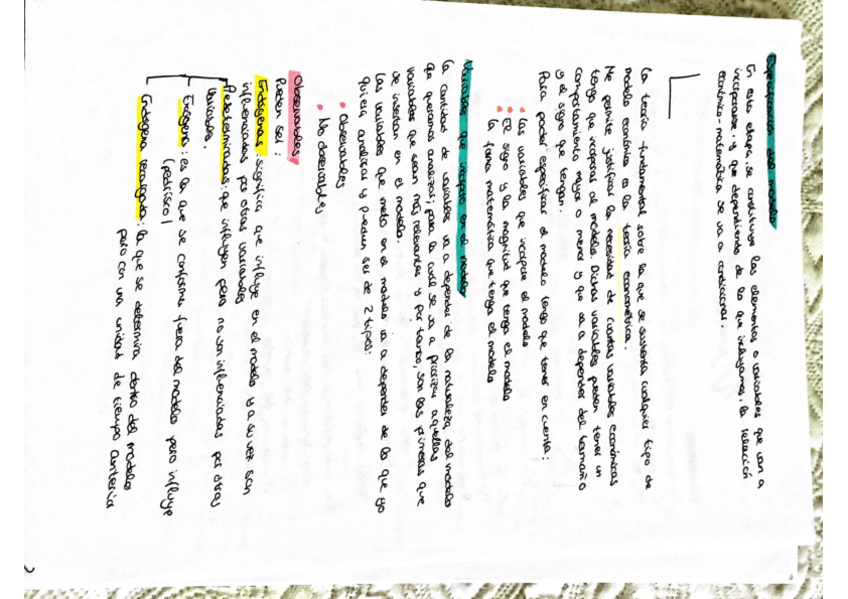 Especificación del modelo
En esta etapa, se constituye los elementos o variables que van a
incorporarse. y que dependiendo de lo que incluyamos, la relación
económico-matemática se va a condicionar.
La teoría fundamental sobre la que se sustenta cualquier tipo de
modelo económico es la teoría econométrica.
Me permite justificar la necesidad de cuantas variables económicas
tengo que incorporar al modelo. Dichas variables pueden tener un
comportamiento mayor o menor y que va a depender del tamaño
y el signo que tengan.
Para poder especificar el modelo tengo que tener en cuenta:
• Las variables que incorpore el modelo
• El signo y la magnitud que tenga el modelo
• la forma matemática que tenga el modelo
Variables que incorporo en el modelo
La cantidad de variables va a depender de la naturaleza del modelo
que queramos analizar; para lo cual se va a priorizar aquellas
variables que sean más relevantes y por tanto, son las primeras que
se insertan en el modelo.
Las variables que meto en el modelo va a depender de lo que yo
quiera analizar y pueden ser de 2 tipos:
• Observables
• No observables
Observables
Pueden ser:
Endógenas: significa que influye en el modelo y a su vez son
influenciadas por otras variables
Predeterminadas: que influyen pero no son influenciadas por otras
variables.
Exógena: es la que se conforma fuera del modelo pero influye
(pedrisco)
Endógena retardada: la que se determina dentro del modelo
pero con una unidad de tiempo anterior